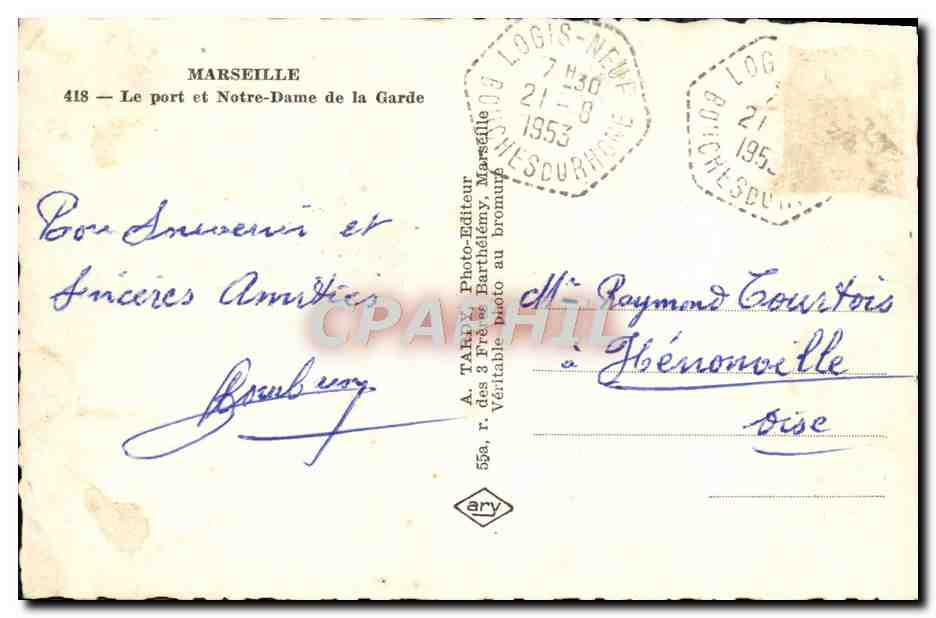 MARSEILLE
418 — Le port et Notre-Dame de la Garde
LOGIS-NEUF
7 H30
21-8
1953
BOUCHESDURHONE
LOG
21
195
BOUCHESDU
Bon Souvenir et
Sincères Amitiés
A. TARDY, Photo-Editeur
55a, r. des 3 Frères Barthélémy, Marseille
Véritable photo au bromure
ary
CPARPHIL
Mr Raymond Tourtois
à Hénonville
Oise